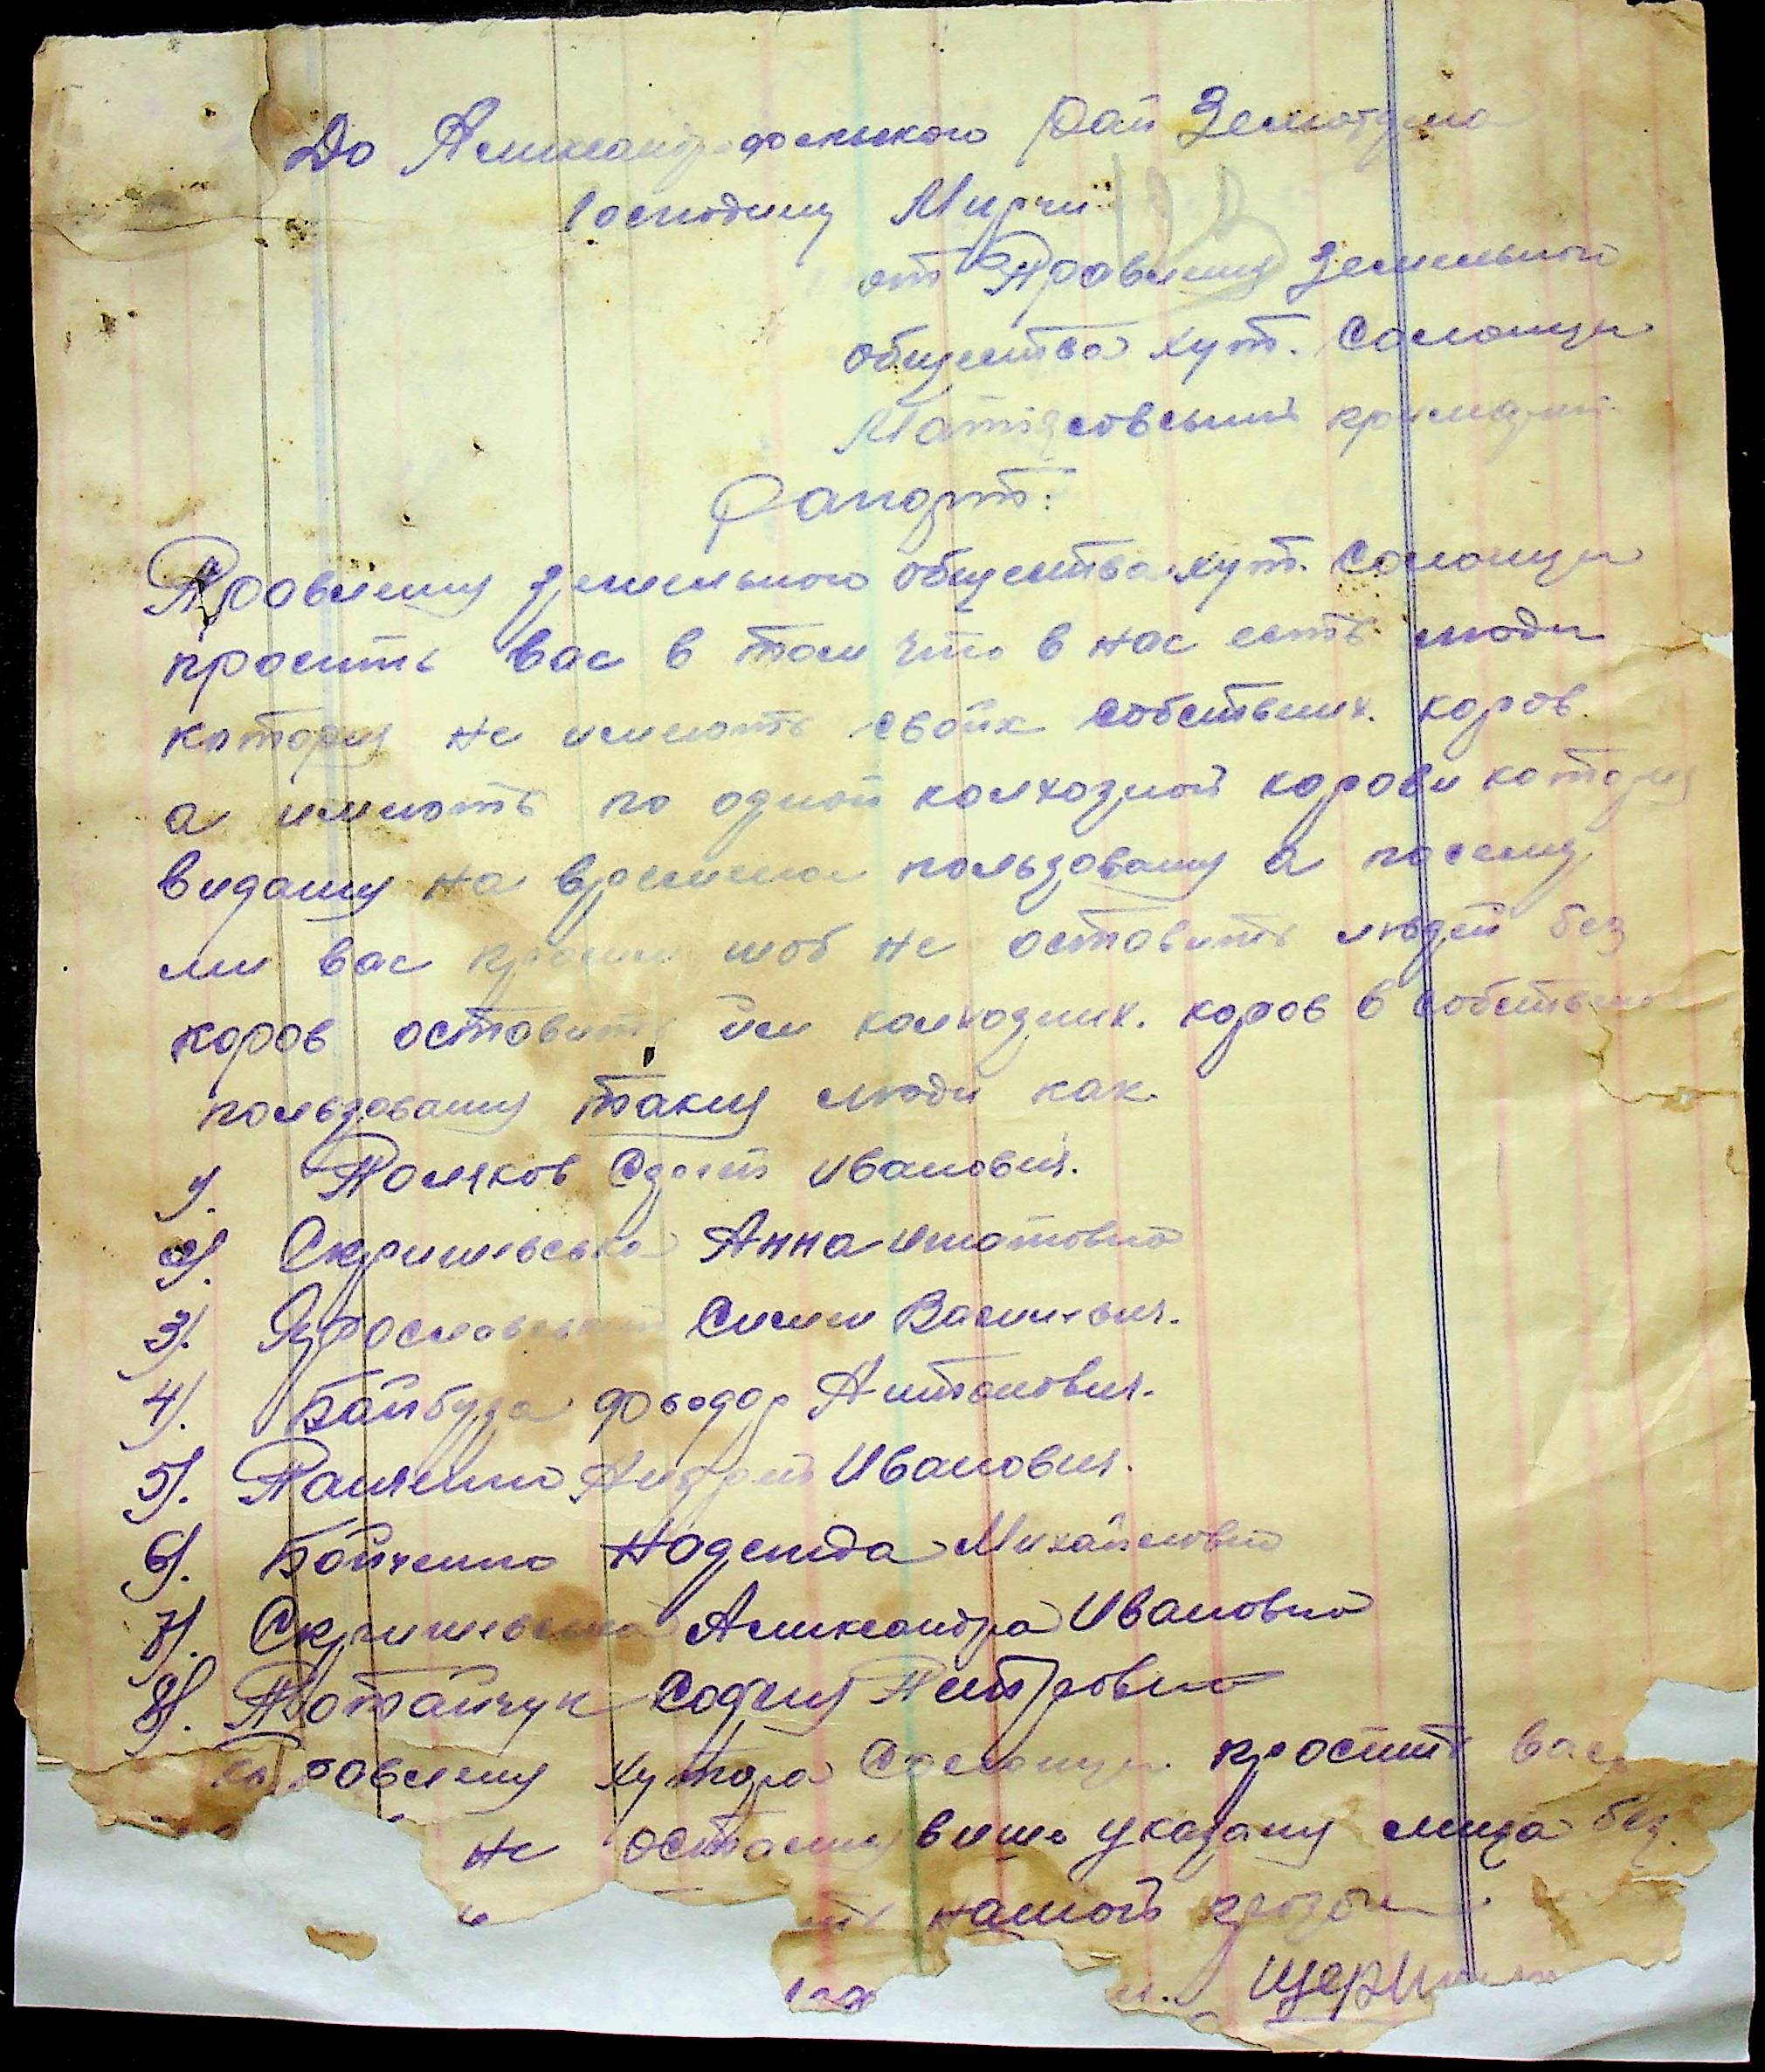 До Александрофельского Рай Земотдела
Господину Мирчи
от Правлению Земельного
общества хут. Солонцы
кримдий
Рапорт:
Правлению земельного общества хут. Солонцы
просить вас в том что в нас есть люди
которую не имеють свойх собствених. коров.
а имеють по одной колхозной корови которую
видану на времени пользовану а посему
ми вас просим шоб не оставить людей без
коров оставить йм колхозних. коров в собствено
пользовану такую люди как.
1). Поляков Сергей Иванович.
2). Скришевська Анна Игнатовна
3). Ярославський Симен Васильвич.
4). Байбуза Фьодор Антонович.
5). Панченко Андрей Иванович.
6). Бойченко Надежда Михайловна
7). Скришевська Александра Ивановна
8). Потайчук Софию Петровна
Правлению хутора Солонцы просить вас
не осташу више указану лица без.
нашой прозби